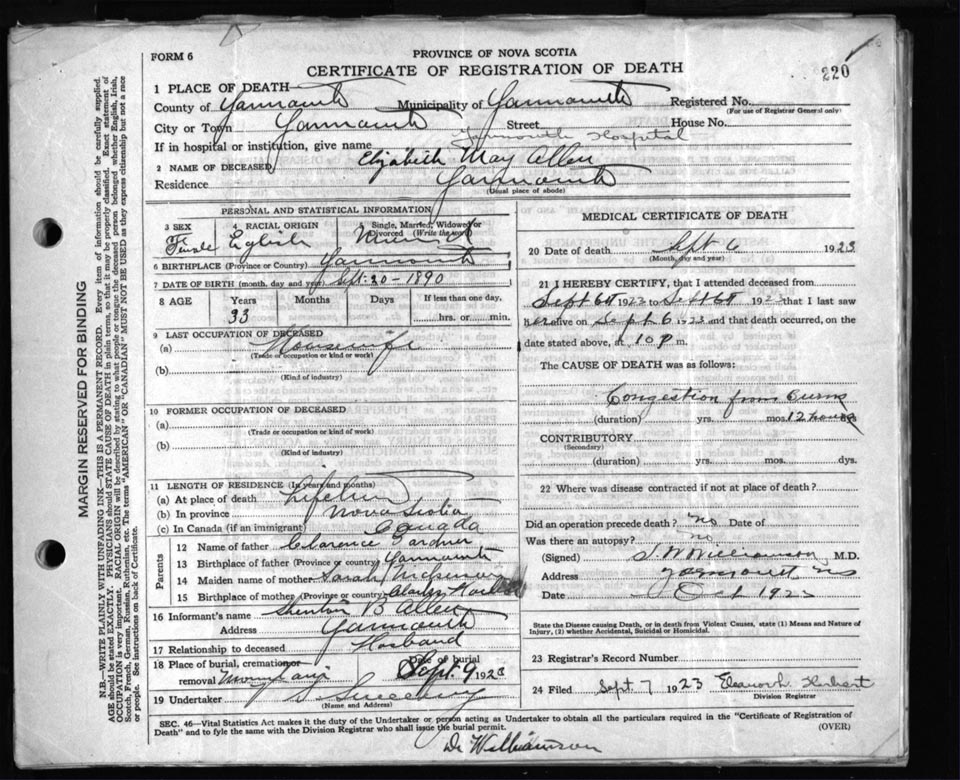 PROVINCE OF NOVA SCOTIA
FORM 6
CERTIFICATE OF REGISTRATION OF DEATH
220
1 PLACE OF DEATH
County of Yarmouth Municipality of Yarmouth Registered No.
(For use of Registrar General only)
City or Town Yarmouth Street House No.
If in hospital or institution, give name Yarmouth Hospital
2 NAME OF DECEASED Elizabeth May Allen
Residence Yarmouth
(Usual place of abode)
PERSONAL AND STATISTICAL INFORMATION
3 SEX Female
4 RACIAL ORIGIN English
5 Single, Married, Widowed or Divorced (Write the word) Married
6 BIRTHPLACE (Province or Country) Yarmouth
7 DATE OF BIRTH (month, day and year) Sept. 20 - 1890
8 AGE Years Months Days If less than one day,
33 hrs. or min.
9 LAST OCCUPATION OF DECEASED
(a) Housewife
(Trade or occupation or kind or work)
(b)
(Kind of industry)
10 FORMER OCCUPATION OF DECEASED
(a)
(Trade or occupation or kind of work)
(b)
(Kind of industry)
11 LENGTH OF RESIDENCE (In years and months)
(a) At place of death Lifetime
(b) In province Nova Scotia
(c) In Canada (if an immigrant) Canada
Parents
12 Name of father Clarence Gardner
13 Birthplace of father (Province or country) Yarmouth
14 Maiden name of mother Sarah
15 Birthplace of mother (Province or country)
16 Informant's name B Allen
Address Yarmouth
17 Relationship to deceased Husband
18 Place of burial, cremation or removal Mountain Date of burial Sept. 9 1923
19 Undertaker Sweeny
(Name and Address)
MEDICAL CERTIFICATE OF DEATH
20 Date of death Sept 6 1923
(Month, day and year)
21 I HEREBY CERTIFY, that I attended deceased from
Sept 6th 1923 to Sept 6th 1923 that I last saw
her alive on Sept 6 1923 and that death occurred, on the
date stated above, at 10 p m.
The CAUSE OF DEATH was as follows:
Congestion from Burns
(duration) yrs. mos. 12 hours
CONTRIBUTORY
(Secondary)
(duration) yrs. mos. dys.
22 Where was disease contracted if not at place of death?
Did an operation precede death? no Date of
Was there an autopsy? no
(Signed) Williamson M.D.
Address Yarmouth NS
Date Oct 1923
State the Disease causing Death, or in death from Violent Causes, state (1) Means and Nature of
Injury, (2) whether Accidental, Suicidal or Homicidal.
23 Registrar's Record Number
24 Filed Sept. 7 1923
Division Registrar
SEC. 46—Vital Statistics Act makes it the duty of the Undertaker or person acting as Undertaker to obtain all the particulars required in the "Certificate of Registration of
Death" and to fyle the same with the Division Registrar who shall issue the burial permit.
(OVER)
Dr Williamson
MARGIN RESERVED FOR BINDING
N.B.—WRITE PLAINLY WITH UNFADING INK—THIS IS A PERMANENT RECORD. Every item of information should be carefully supplied.
AGE should be stated EXACTLY. PHYSICIANS should STATE CAUSE OF DEATH in plain terms, so that it may be properly classified. Exact statement of
OCCUPATION is very important. RACIAL ORIGIN will be described by stating to what people or tongue the deceased person belonged whether English, Irish,
Scotch, French, German, Russian, Ruthenian, etc. The terms "AMERICAN" or "CANADIAN" MUST NOT BE USED as they express citizenship but not a race
or people. See instructions on back of Certificate.